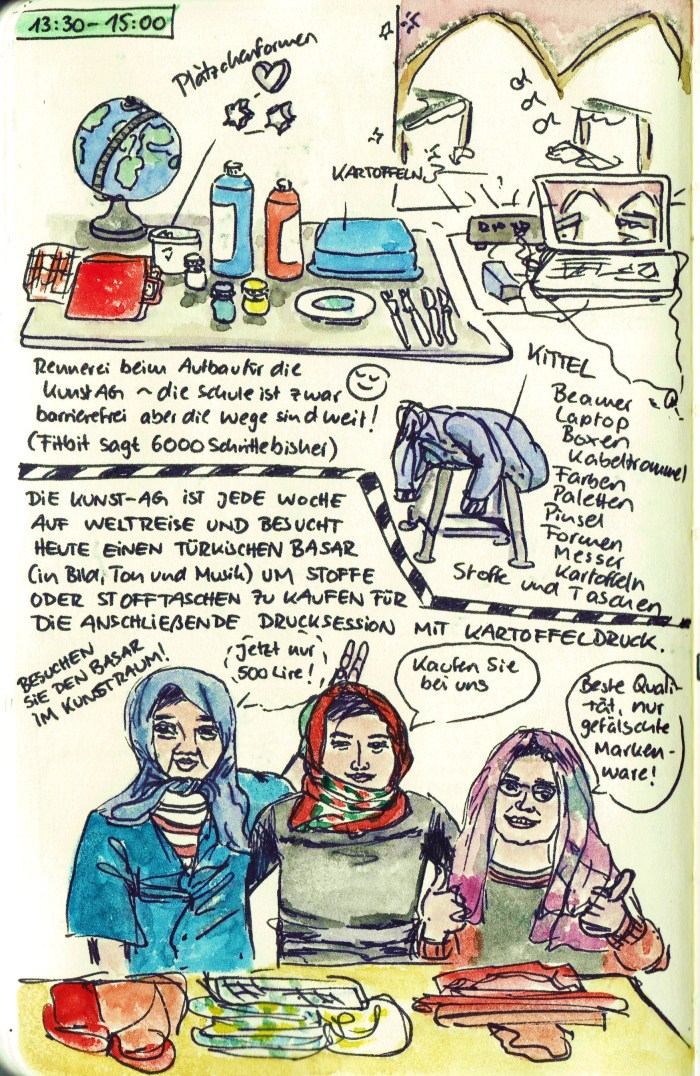 13:30-15:00
Plätzchenformen
KARTOFFELN
Rennerei beim Aufbau für die
Kunst AG ~ die Schule ist zwar
barrierefrei aber die Wege sind weit!
(Fitbit sagt 6000 Schritte bisher)
KITTEL
Beamer
Laptop
Boxen
Kabeltrommel
Farben
Paletten
Pinsel
Formen
Messer
Kartoffeln
Stoffe und Taschen
DIE KUNST-AG IST JEDE WOCHE
AUF WELTREISE UND BESUCHT
HEUTE EINEN TÜRKISCHEN BASAR
(in Bild, Ton und Musik) UM STOFFE
ODER STOFFTASCHEN ZU KAUFEN FÜR
DIE ANSCHLIEßENDE DRUCKSESSION MIT KARTOFFELDRUCK.
BESUCHEN
SIE DEN BASAR
IM KUNSTRAUM!
Jetzt nur
500 Lire!
Kaufen Sie
bei uns
Beste Quali-
tät, nur
gefälschte
Marken-
ware!